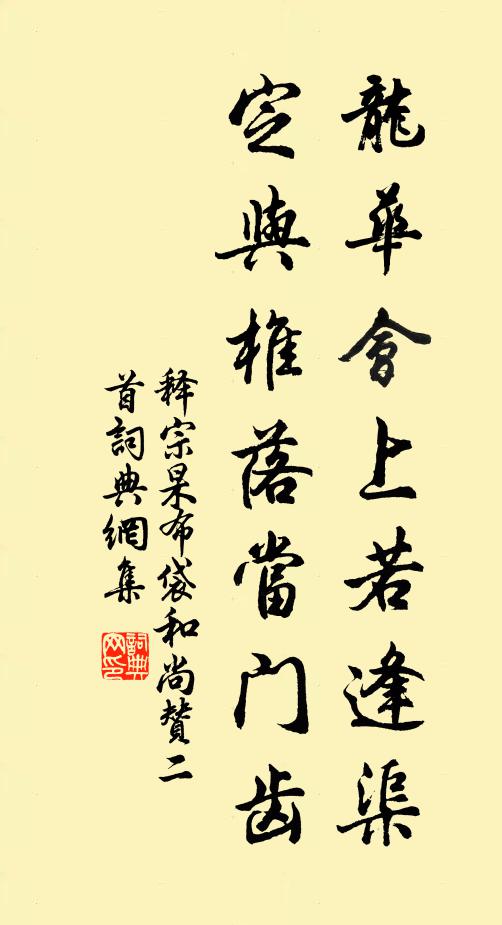 龍華會上若逢渠
定與椎落當門齿
释宗杲布袋和尚贊二
首詞典網集
詞典
网印